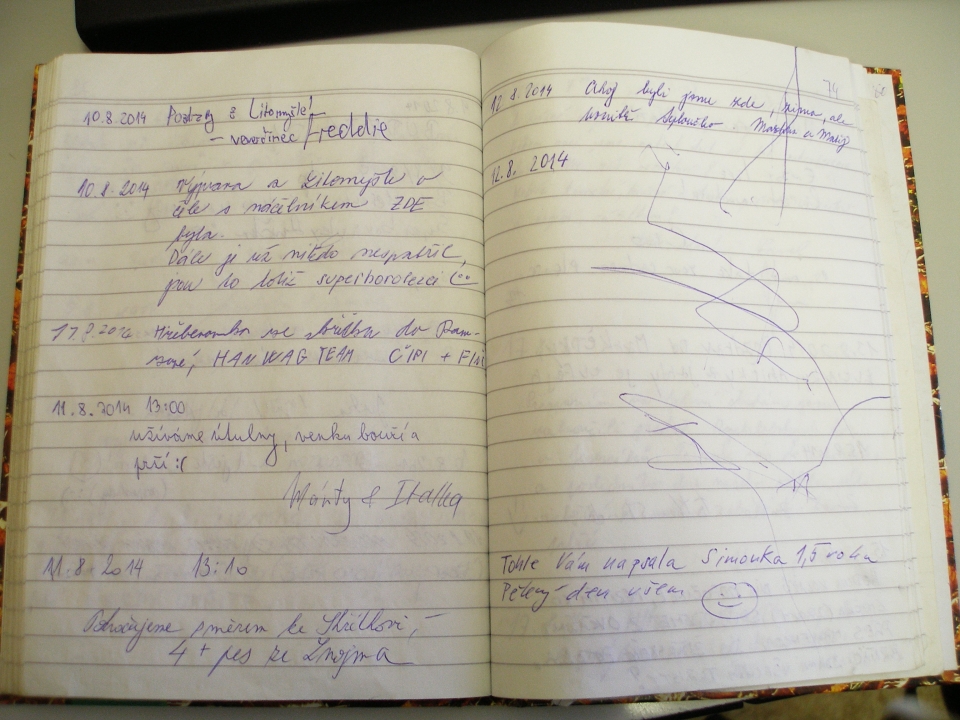 10.8.2014 Pozdravy z Litomyšle!
– veverčinec Freddie
10.8.2014 Výprava z Litomyšle v
čele s náčelníkem ZDE
byla.
Dále je už nikdo nespatřil,
jsou to totiž superborolezci
se do
HANWAG TEAM ČIPI + FINI
11.8.2014 13:00
užíváme útulny, venku bouří a
prší :(
Márty & Italka
11.8.2014 13:10
Pokračujeme směrem ke Skřítkovi,–
4 + pes ze Znojma
74
12.8.2014 Ahoj byli jsme zde, zima, ale
a
12.8. 2014
Tohle Vám napsala Simonka 1,5 roku
Pěkný den všem